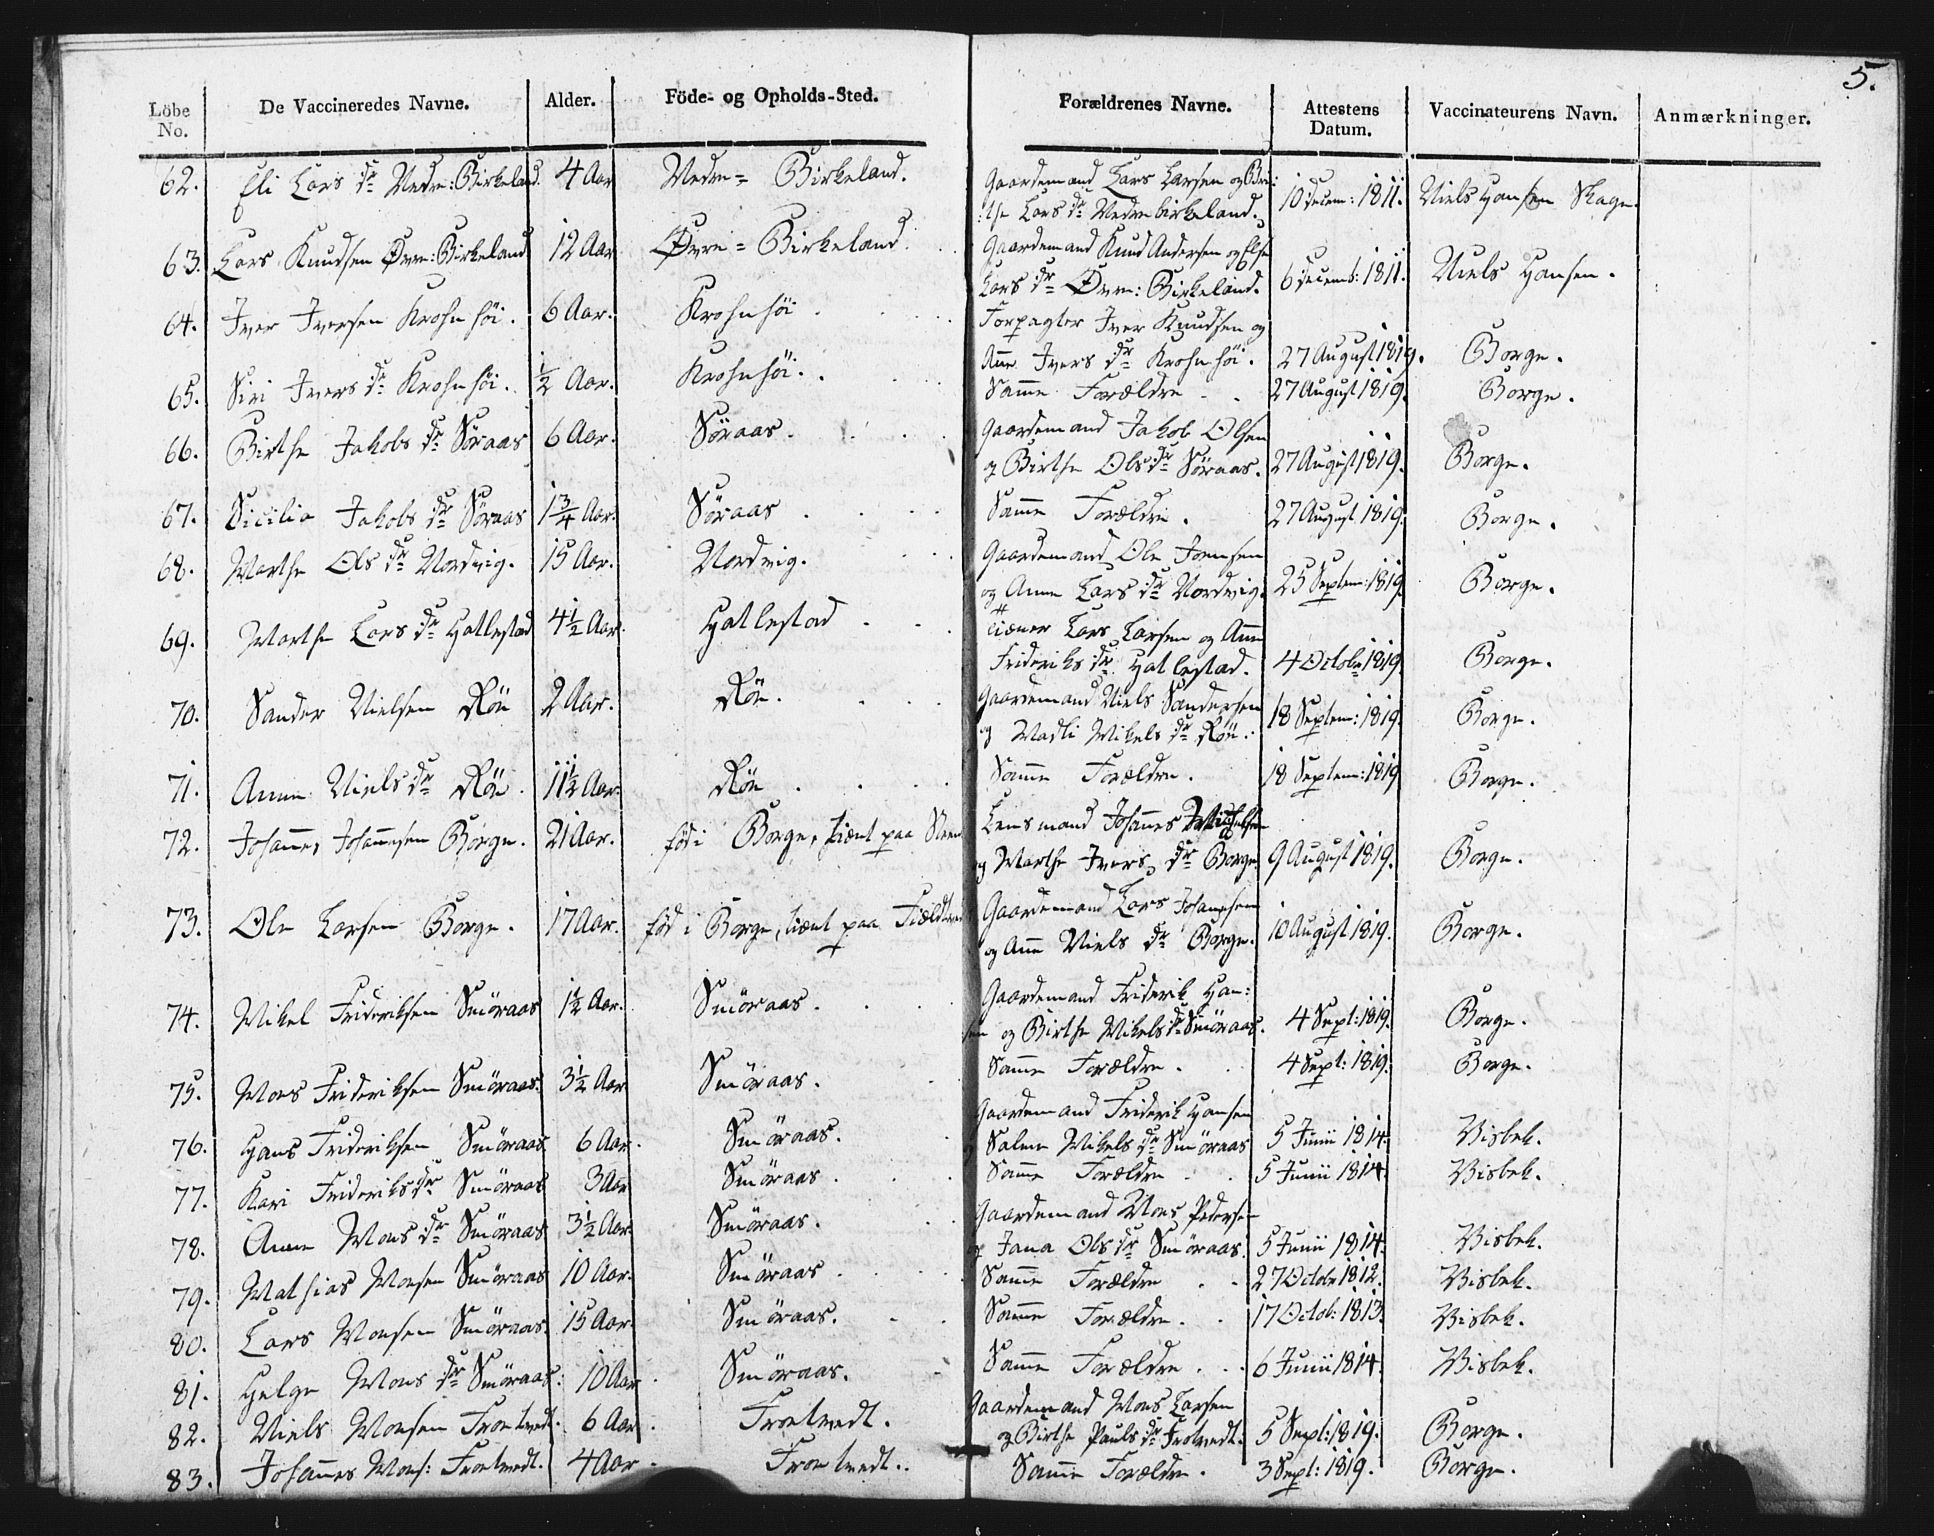 5.
Löbe No. De Vaccineredes Navne. Alder. Föde- og Opholds-Sted. Forældrenes Navne. Attestens Datum. Vaccinateurens Navn. Anmærkninger.
62. Eli Lars dr Nedre: Birkeland. 4 Aar Nedre = Birkeland. Gaardemand Lars Larsen og Bri: 10 Decem: 1811. Niels Hansen Skage.
:the Lars dr Nedre birkeland.
63. Lars Knudsen Øvre: Birkeland 12 Aar Øvre = Birkeland. Gaardemand Knud Andersen og Else 6 Decemb: 1811. Niels Hansen.
Lars dr Øvre: Birkeland.
64. Iver Iversen Krohnhöi. 6 Aar. Krohnhöi. Forpagter Iver Knudsen og
Ane Ivers dr Krohnhöi. 27 August 1819. Borge.
65. Siri Ivers dr Krohnhöi. ½ Aar. Krohnhöi. Samme Forældre 27 August 1819. Borge.
66. Birthe Jakobs dr Söraas 6 Aar. Söraas. Gaardemand Jakob Olsen
og Birthe Ols dr Söraas. 27 August 1819. Borge.
67. Sicilia Jakobs dr Söraas 1¾ Aar. Söraas Samme Forældre. 27 August 1819. Borge.
68. Marthe Ols dr Nordvig. 15 Aar. Nordvig. Gaardemand Ole Joensen
og Anne Lars dr Nordvig. 25 Septem: 1819 Borge.
69. Marthe Lars dr Hatlestad 4½ Aar. Hatlestad Lars Larsen og Anne
Frideriks dr Hatlestad. 4 Octobr 1819 Borge.
70. Sander Nielsen Röe 2 Aar. Röe. Gaardemand Niels Sandersen 18 Septem: 1819 Borge.
og Madli Mikels dr Röe.
71. Anne Niels dr Röe. 11½ Aar. Röe Samme Forældre. 18 Septem: 1819 Borge.
72. Johannes Johannesen Borge. 21 Aar. föd i Borge, tient paa Steen Lensmand Johannes
og Marthe Ivers dr Borge 9 August 1819. Borge.
73. Ole Larsen Borge. 17 Aar. föd i Borge, tient paa Gaardemand Lars Johannesen 10 August 1819. Borge.
og Anne Niels dr Borge.
74. Mikel Frideriksen Smöraas 1½ Aar. Smöraas. Gaardemand Friderik Han:
sen og Birthe Mikels dr Smöraas. 4 Sept: 1819. Borge.
75. Mons Frideriksen Smöraas. 3½ Aar Smöraas. Samme Forældre. 4 Sept: 1819. Borge.
76. Hans Frideriksen Smöraas 6 Aar. Smöraas. Gaardemand Friderik Hansen
og Salene Mikels dr Smöraas 5 Junii 1814. Visbek.
77. Kari Frideriks dr Smöraas 3 Aar Smöraas. Samme Forældre 5 Junii 1814. Visbek.
78. Anne Mons dr Smöraas 3½ Aar. Smöraas. Gaardemand Mons Pedersen
og Jana Ols dr Smöraas. 5 Junii 1814. Visbek.
79. Mathias Monsen Smöraas 10 Aar. Smöraas. Samme Forældre 27 Octobr 1812. Visbek.
80. Lars Monsen Smöraas. 15 Aar. Smöraas. Samme Forældre. 17 Octob: 1813. Visbek.
81. Helge Mons dr Smöraas. 10 Aar. Smöraas. Samme Forældre. 6 Junii 1814. Visbek.
82. Niels Monsen Troetvedt. 6 Aar. Troetvedt. Gaardemand Mons Larsen
og Birthe Pauls dr Trotvedt. 5 Sept: 1819. Borge.
83. Johannes Mons: Troetvedt. 4 Aar. Troetvedt. Samme Forældre. 3 Sept: 1819. Borge.